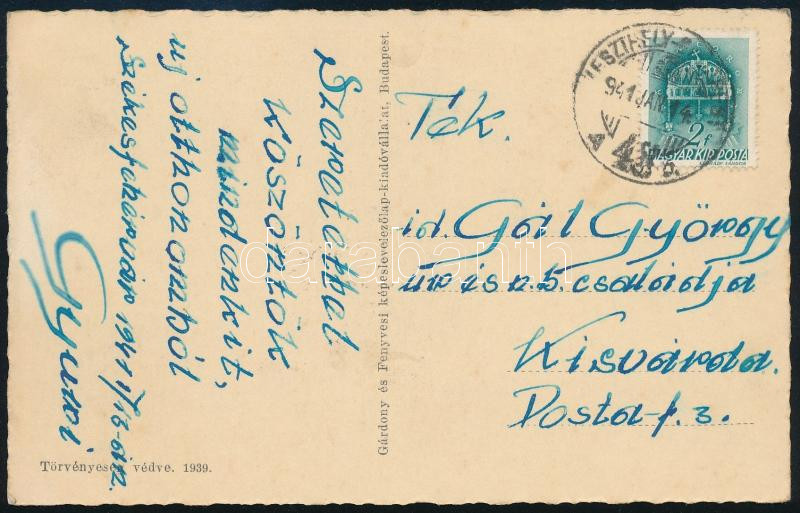 Szeretettel
köszöntök
mindenkit,
uj otthonomból
Székesfehérvár 1941 I/13-án.
Gyuri
Törvényesen védve. 1939.
Gárdony és Fenyvesi képeslevelezőlap-kiadóvállalat, Budapest.
Tek.
id. Gál György
úr és n.b. családja
Kisvárda.
Posta-f. 3.
941 JAN
2 f
MAGYAR KIR. POSTA
darabanth